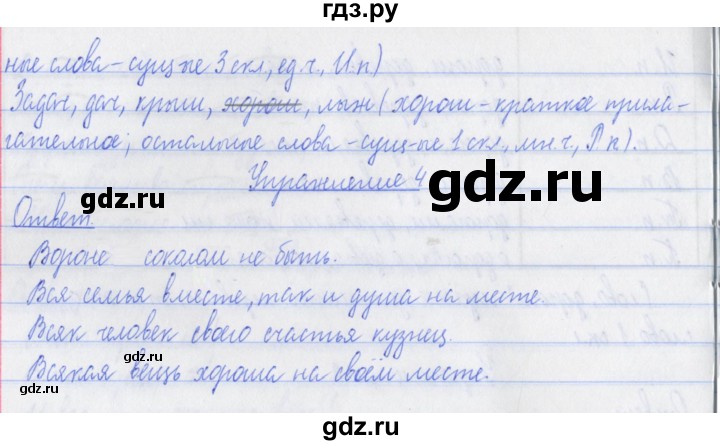 гдз.ру
ные слова - сущ-ые 3 скл, ед.ч., И.п)
Задач, дач, крыш, хорош, лыж (хорош - краткое прила-
гательное; остальные слова - сущ-ые 1 скл., мн.ч, Р.п).
Упражнение 4
gdz.ru
Ответ.
Вороне соколом не быть.
Вся семья вместе, так и душа на месте.
Всяк человек своего счастья кузнец.
gdz.ru
Всякая вещь хороша на своём месте.
gdz.ru
gdz.ru